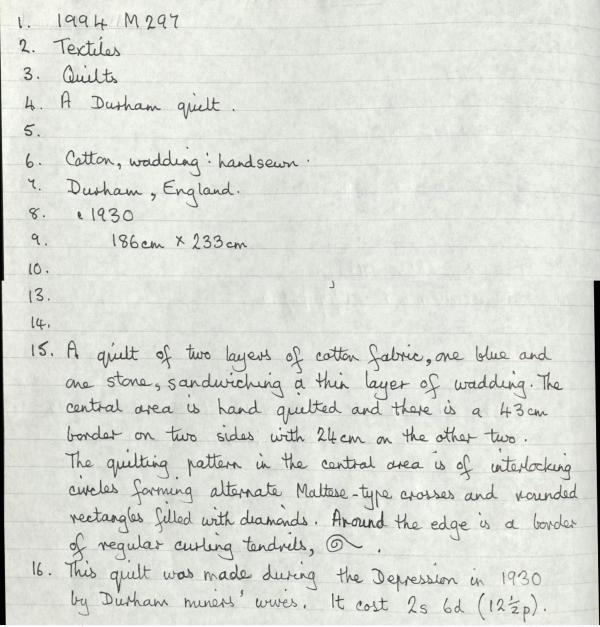 1. 1994 M 297
2. Textiles
3. Quilts
4. A Durham quilt.
5.
6. Cotton, wadding: handsewn.
7. Durham, England.
8. c 1930
9. 186cm x 233cm
10.
13.
14.
15. A quilt of two layers of cotton fabric, one blue and
one stone, sandwiching a thin layer of wadding. The
central area is hand quilted and there is a 43cm
border on two sides with 24cm on the other two.
The quilting pattern in the central area is of interlocking
circles forming alternate Maltese-type crosses and rounded
rectangles filled with diamonds. Around the edge is a border
of regular curling tendrils, .
16. This quilt was made during the Depression in 1930
by Durham miners' wives. It cost 2s 6d (12½p).